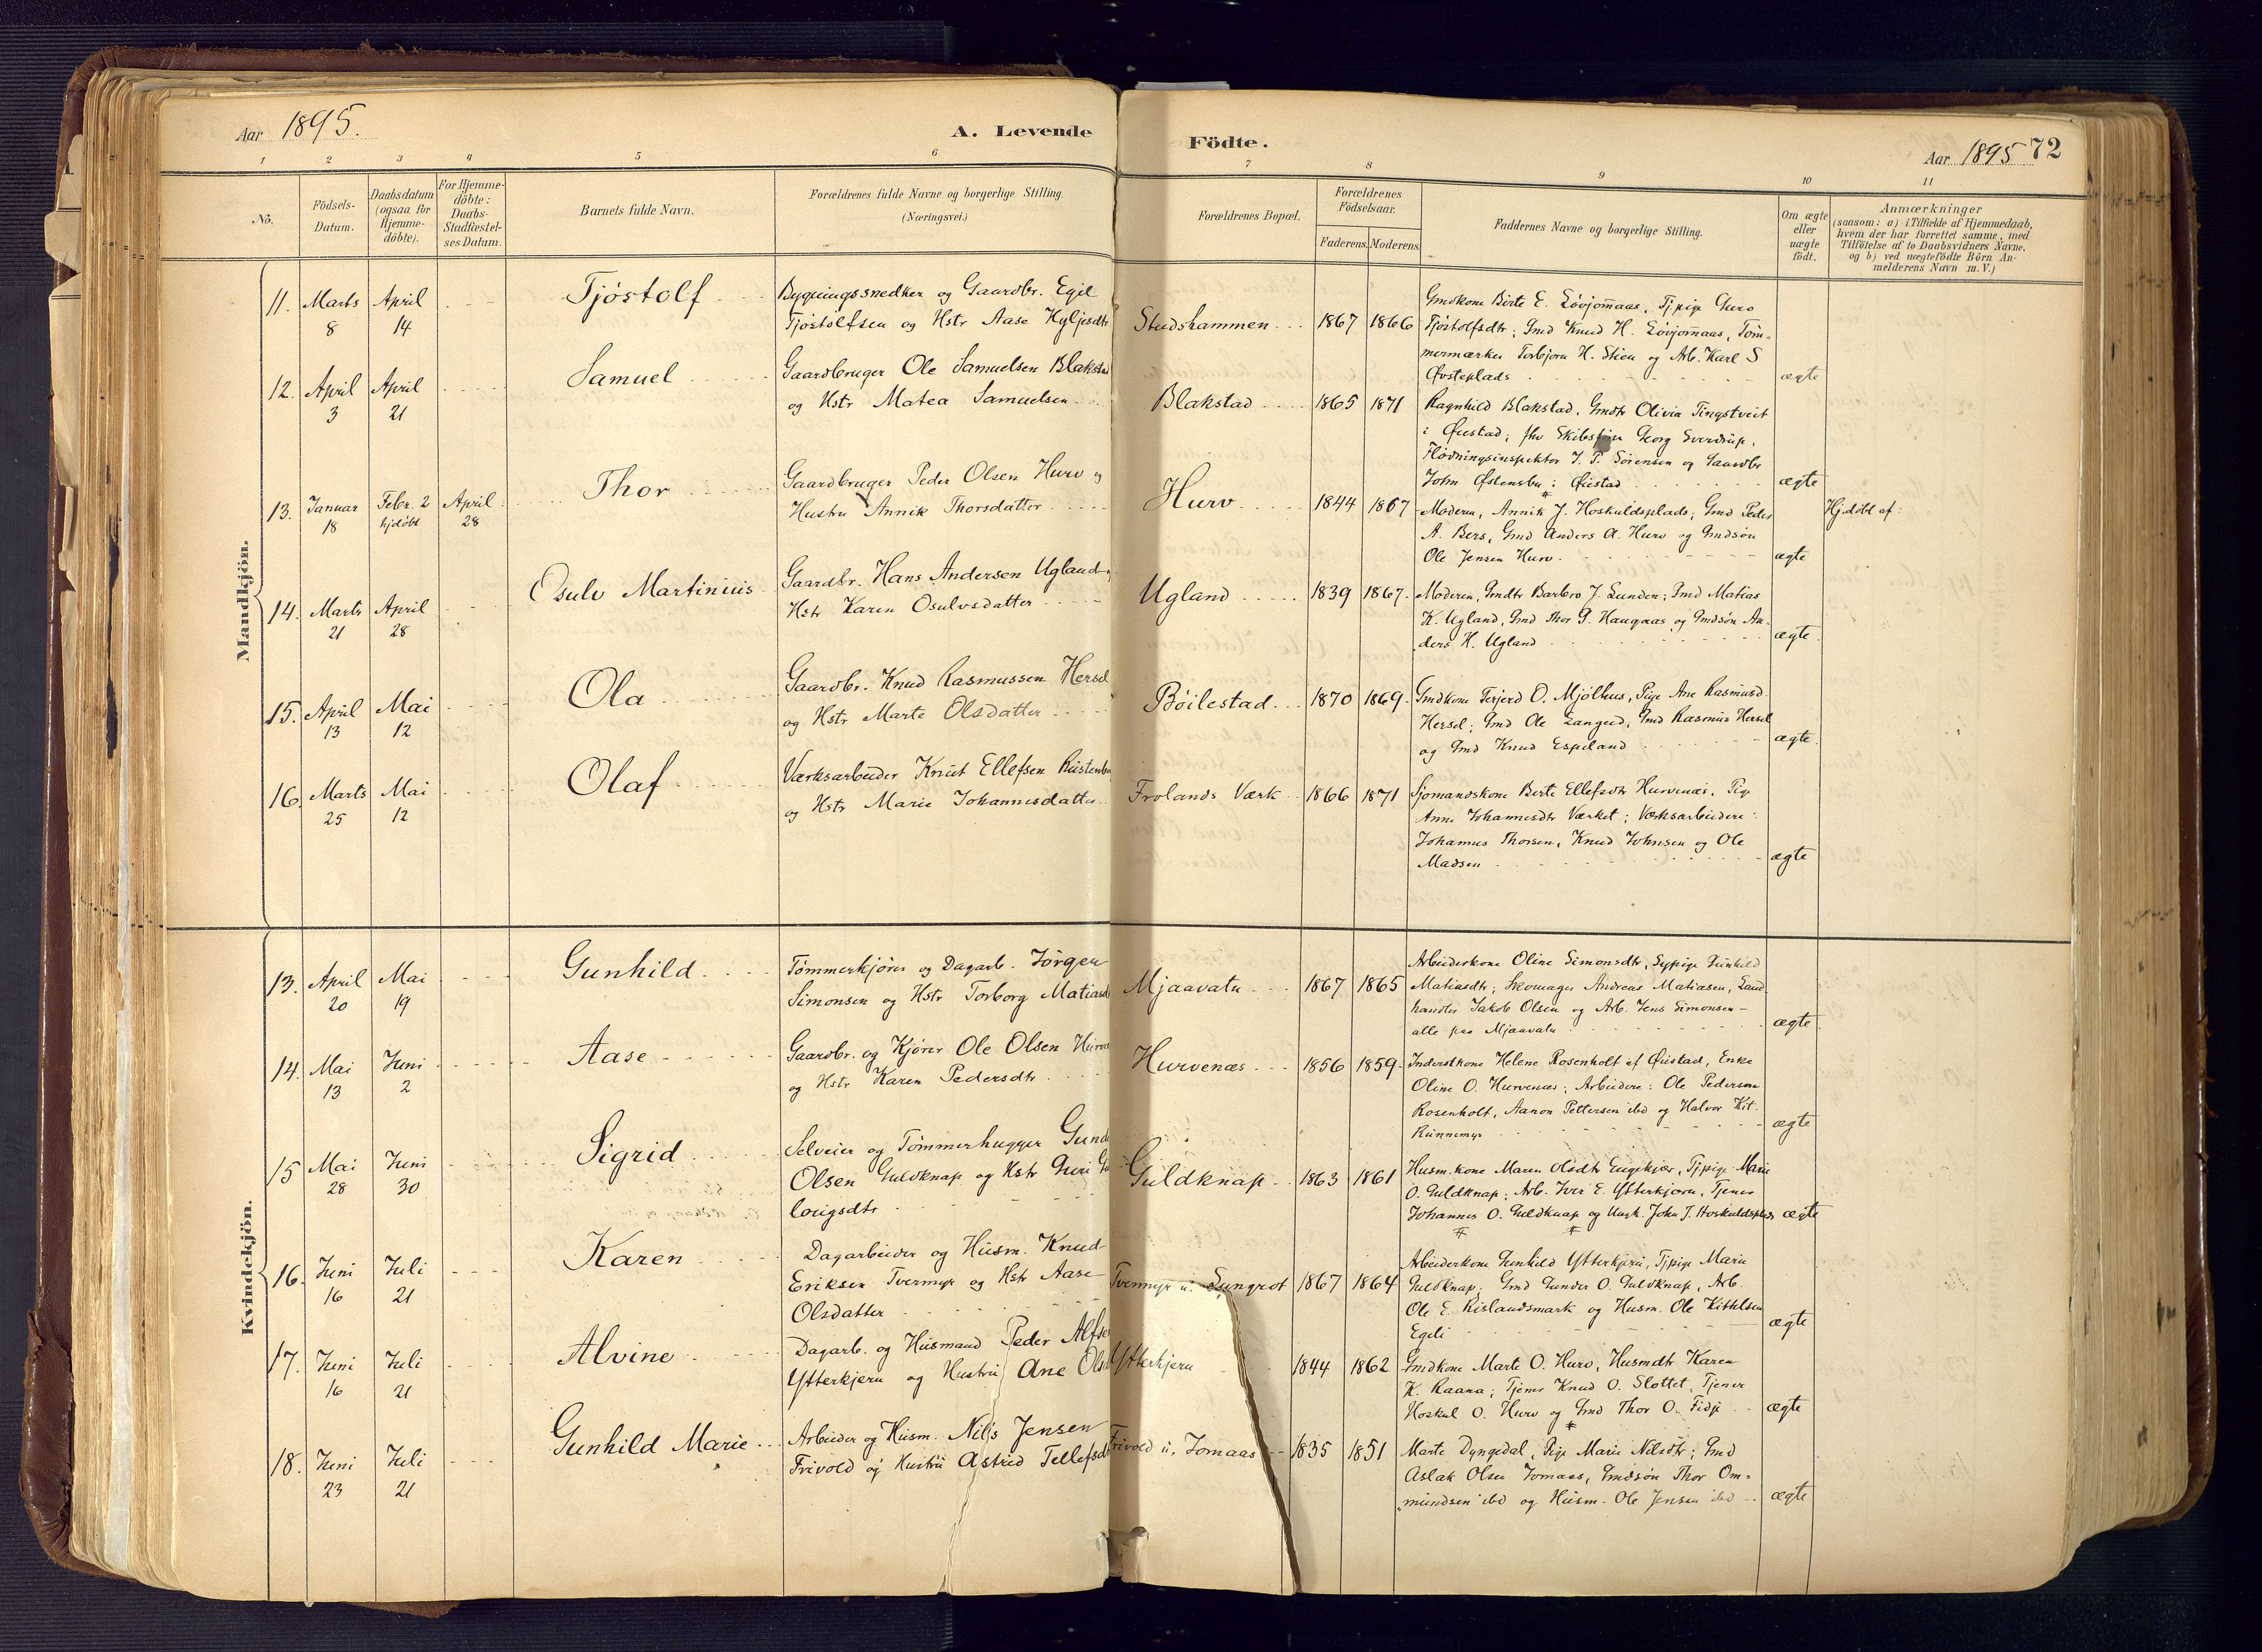 Aar 1895.
A. Levende Födte.
Aar 1895 72
1 2 3 4 5 6 7 8 9 10 11
No.
Födsels-Datum.
Daabsdatum (ogsaa for Hjemme-döbte).
For Hjemme-döbte: Daabs-Stadfæstel-ses Datum.
Barnets fulde Navn.
Forældrenes fulde Navne og borgerlige Stilling.
(Næringsvei.)
Forældrenes Bopæl.
Forældrenes Födselsaar.
Faderens. Moderens.
Faddernes Navne og borgerlige Stilling.
Om ægte eller uægte födt.
Anmærkninger
(saasom: a) i Tilfælde af Hjemmedaab,
hvem der har forrettet samme, med
Tilföielse af to Daabsvidners Navne,
og b) ved uægtefödte Börn An-
melderens Navn m. V.)
Mandkjön.
11. Marts 8 April 14 Tjöstolf
Bygningssnedker og Gaardbr. Egil
Tjöstolfsen og Hstr Aase
Studshammen 1867 1866
Gmdkone Birte E. Lövjomaas, Tjpige Guro
Tjöstolfsdtr; Gmd Knud H. Lövjomaas, Töm-
mermærker Torbjorn H. Stien og Arb. Karl S
Øvsteplads ægte
12. April 3 April 21 Samuel
Gaardbruger Ole Samuelsen Blakstad
og Hstr Matea Samuelsen
Blakstad 1865 1871
Ragnhild Blakstad, Gmdtr Olivia Tingstveit
i Øiestad; Georg Sverdrup,
Flödningsinspektor J. P. Sörensen og Gaardbr
John Østensbu i Øiestad ægte
13. Januar 18 Febr. 2 hjdöbt April 28 Thor
Gaardbruger Peder Olsen Hurv og
Hustru Annik Thorsdatter
Hurv 1844 1867
Moderen, Annik J. Hoskuldsplads; Gmd Peder
A. Bers, Gmd Anders A. Hurv og Gmdsön
Ole Jensen Hurv ægte
Hj.döbt af:
14. Marts 21 April 28 Osulv Martinius
Gaardbr. Hans Andersen Ugland og
Hstr Karen Osulvsdatter
Ugland 1839 1867
Moderen, Gmdtr Barbro J. Lunden; Gmd Matias
K. Ugland, Gmd Thor G. Haugaas og Gmdsön An-
ders H. Ugland ægte
15. April 13 Mai 12 Ola
Gaardbr. Knud Rasmussen Hersel
og Hstr Marte Olsdatter
Böilestad 1870 1869
Gmdkone Terjerd O. Mjölhus, Pige Ane Rasmusd.
Hersel; Gmd Ole Langeid, Gmd Rasmus Hersel
og Gmd Knud Espeland ægte
16. Marts 25 Mai 12 Olaf
Værksarbeider Knut Ellefsen
og Hstr Marie Johannesdatter
Frolands Værk 1866 1871
Sjömandskone Berte Ellefsdtr Hurvenæs, Pige
Anne Johannesdtr Værket; Værksarbeidere:
Johannes Thorsen, Knud Johnsen og Ole
Madsen ægte
Kvindekjön.
13. April 20 Mai 19 Gunhild
Tömmerkjörer og Dagarb. Jörgen
Simonsen og Hstr Torborg Matiasd
Mjaavatn 1867 1865
Arbeiderkone Oline Simonsdtr, Sypige Gunhild
Matiasdtr; Skomager Andreas Matiasen, Land-
handler Jakob Olsen og Arb. Jens Simonsen -
alle paa Mjaavatn ægte
14. Mai 13 Juni 2 Aase
Gaardbr. og Kjörer Ole Olsen
og Hstr Karen Pedersdtr
Hurvenæs 1856 1859
Inderstkone Helene Rosenholt af Øiestad, Enke
Oline O. Hurvenæs; Arbeidere: Ole Pederson
Rosenholt, Aanon Pettersen ibd og Halvor Kit.
Runnemyr ægte
15 Mai 28 Juni 30 Sigrid
Selveier og Tömmerhugger
Olsen Guldknap og Hstr Guri
lougsdtr
Guldknap 1863 1861
Husm.kone Maren Olsdtr Engekjær, Tjpige Marie
O. Guldknap; Arb. Iver E. Ytterkjern, Tjener
Johannes O. Guldknap og Ungk. John J. Hoskuldsplads ægte
16. Juni 16 Juli 21 Karen
Dagarbeider og Husm. Knud
Eriksen Tvermyr og Hstr Aase
Olsdatter
Tvermyr u. Lyngrot 1867 1864
Arbeiderkone Gunhild Ytterkjern, Tjpige Marie
Guldknap; Gmd Gunder O. Guldknap, Arb.
Ole E. Rislandsmark og Husm. Ole Kittelsen
Egeli ægte
17. Juni 16 Juli 21 Alvine
Dagarb. og Husmand Peder
Ytterkjern og Hustru Ane
Ytterkjern 1844 1862
Gmdkone Marte O. Hurv, Husmdtr Karen
K. Raana; Tjener Knud O. Slottet, Tjener
Hoskul O. Hurv og Gmd Thor O. Fidje ægte
18. Juni 23 Juli 21 Gunhild Marie
Arbeider og Husm. Nils Jensen
Frivold og Hustru Astrid Tellefsd
Frivold u. Jomaas 1835 1851
Marte Dyngedal, Pige Marie Nilsdtr; Gmd
Aslak Olsen Jomaas, Gmdsön Thor Om-
mundsen ibd og Husm. Ole Jensen ibd ægte